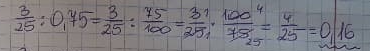 3/25 : 0,75 = 3/25 : 75/100 = 3/25 · 100/75 = 4/25 = 0,16